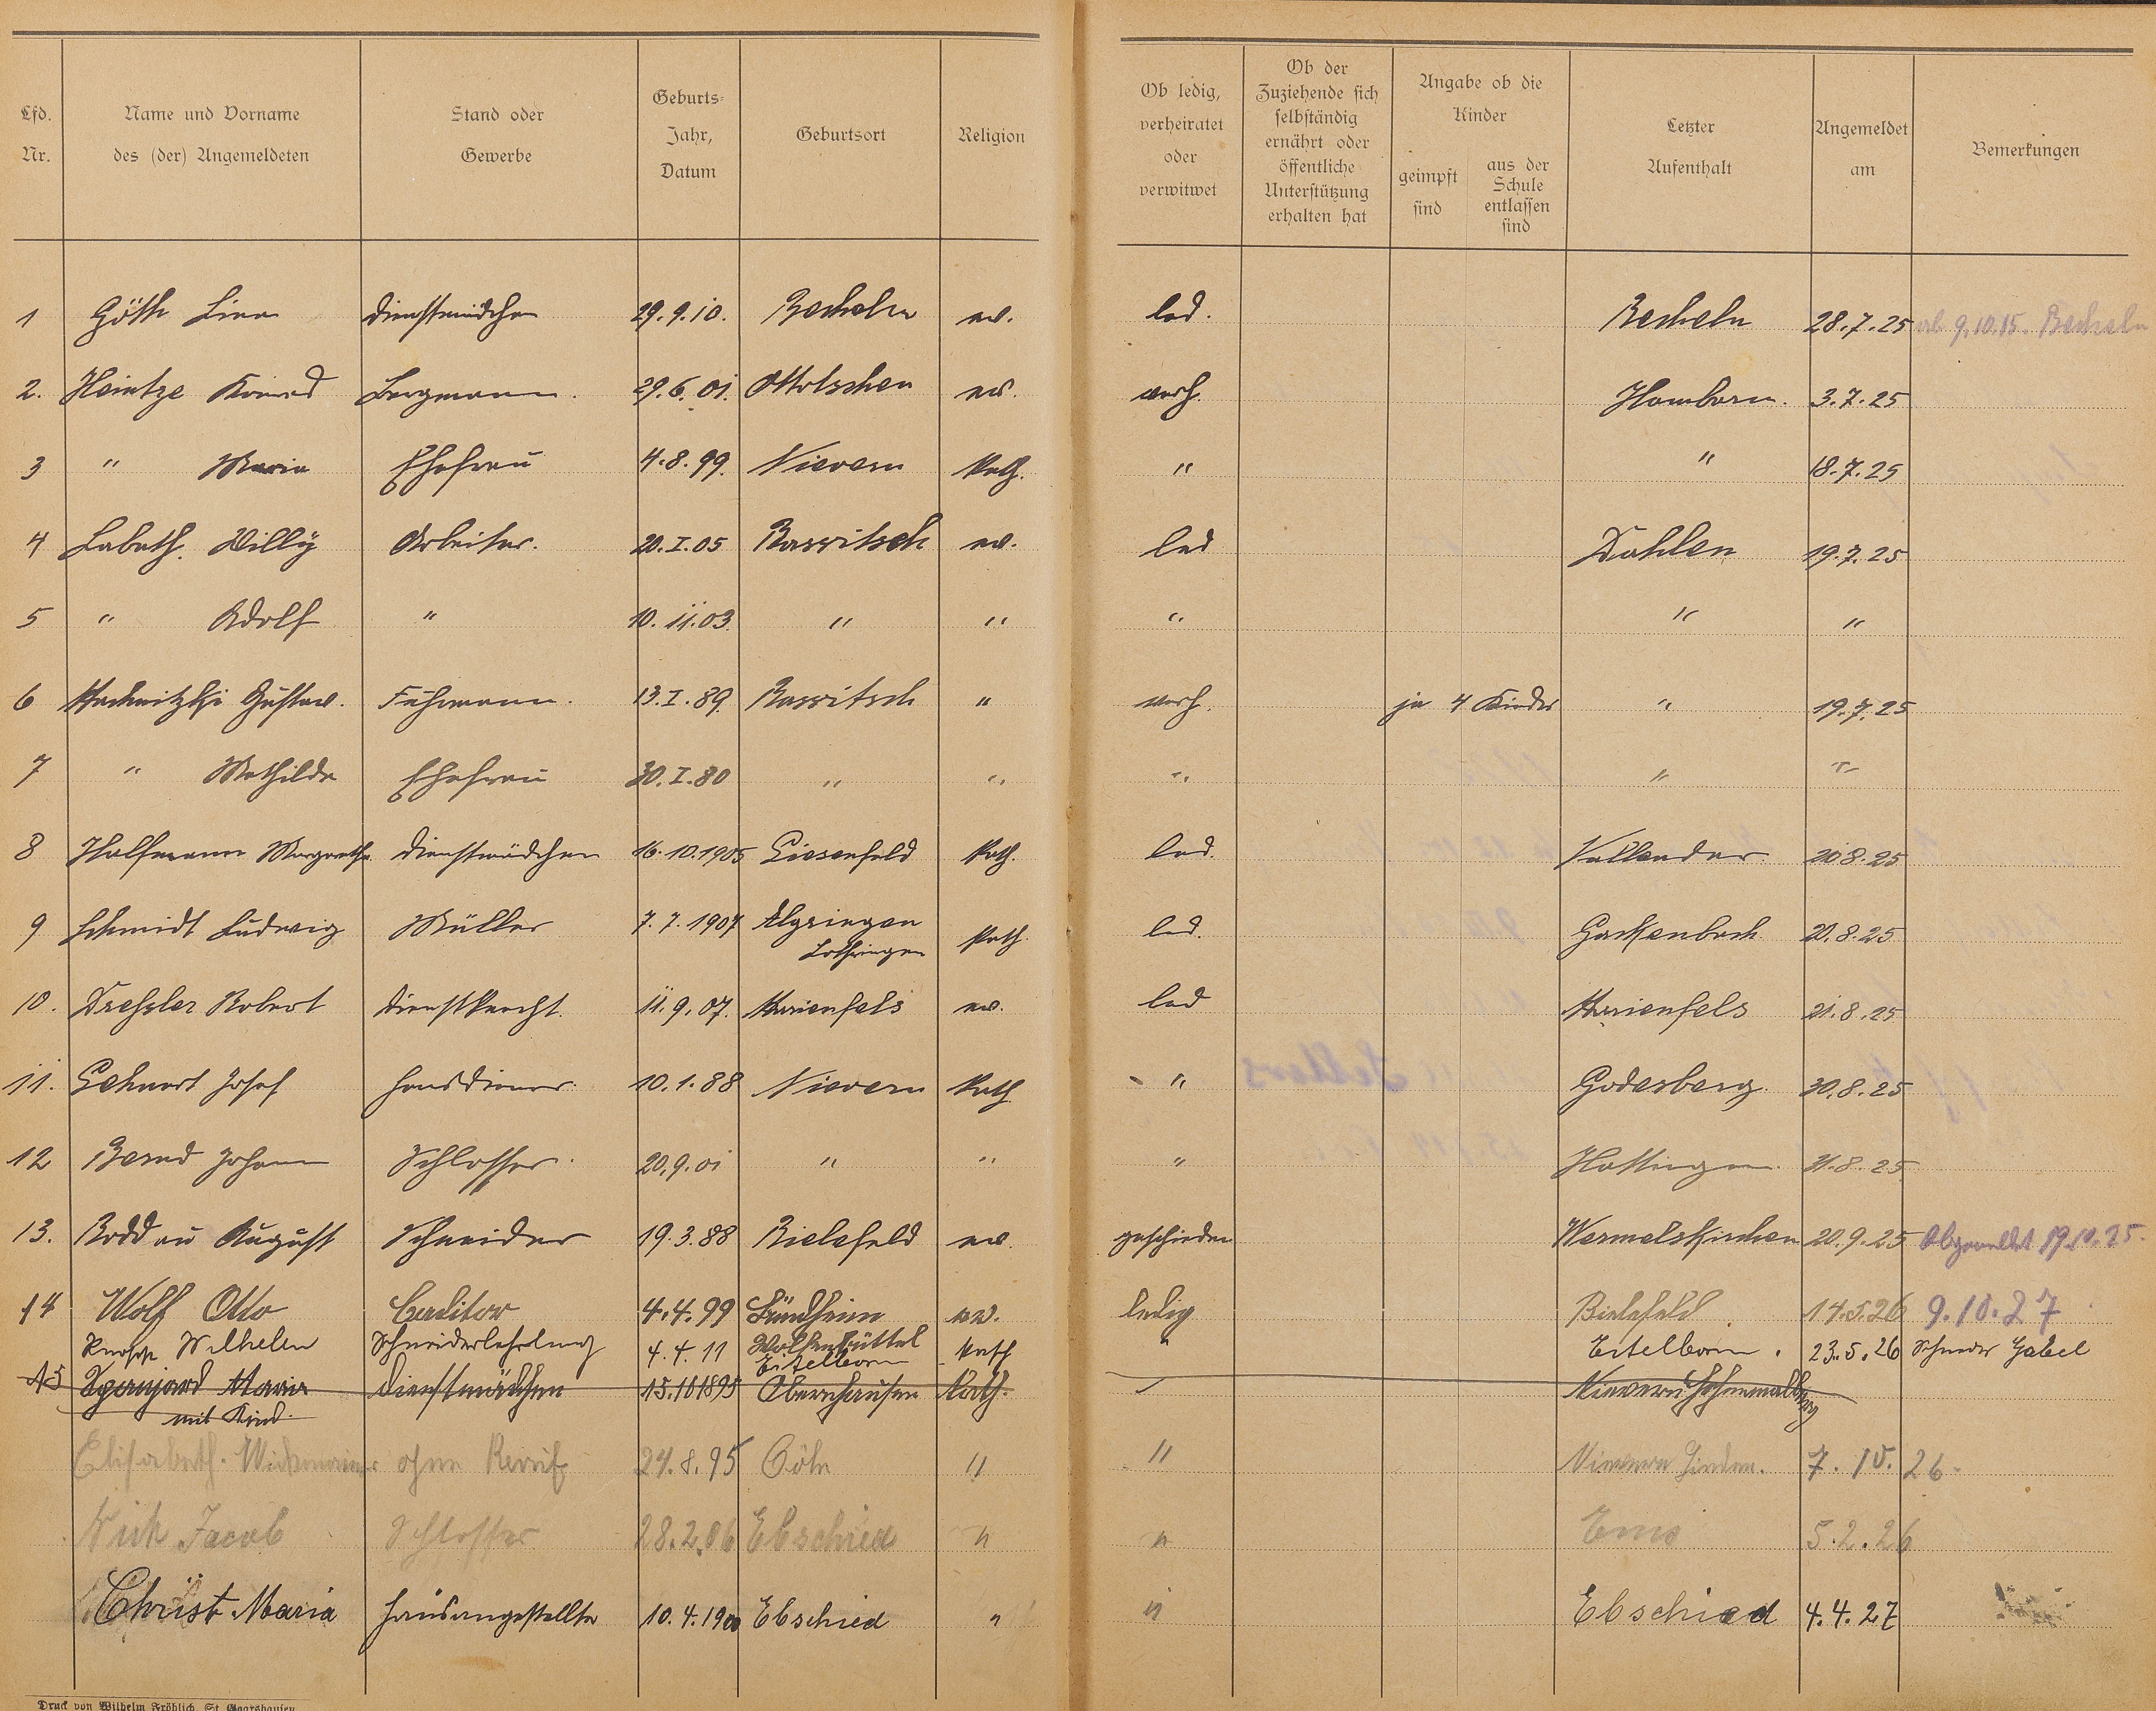 Lfd. Nr.
Name und Vorname des (der) Angemeldeten
Stand oder Gewerbe
Geburts- Jahr, Datum
Geburtsort
Religion
Ob ledig, verheiratet oder verwitwet
Ob der Zuziehende sich selbständig ernährt oder öffentliche Unterstützung erhalten hat
Angabe ob die Kinder
geimpft sind
aus der Schule entlassen sind
Letzter Aufenthalt
Angemeldet am
Bemerkungen
1 Göth Lina Dienstmädchen 29.9.10. Becheln ev. led. Becheln 28.7.25 ab 9.10.15. Becheln
2. Heintze Konrad Bergmann. 29.6.01. ev. verh. Hamborn. 3.7.25
3 " Maria Ehefrau 4.8.99. Nievern Kath. " " 18.7.25
4 Labath. Willy Arbeiter. 20.I.05 ev. led Dahlen 19.7.25
5 " Adolf " 10.11.03. " " " " "
6 Gustav. Fuhrmann. 13.I.89. " verh. ja 4 Kinder " 19.7.25
7 " Mathilde Ehefrau 30.I.80 " " " " "
8 Halfmann Margarethe Dienstmädchen 16.10.1905 Giesenfeld Kath. led. Vallendar 20.8.25
9 Schmidt Ludwig Müller 7.7.1907 Algringen Lothringen Kath. led. Gackenbach 20.8.25
10. Dressler Robert Dienstknecht. 11.9.07. Marienfels ev. led Marienfels 21.8.25
11. Gehnert Josef Hausdiener. 10.1.88 Nievern Kath " Godesberg. 30.8.25
12 Bernd Johann Schlosser. 20.9.01 " " " Hattingen. 31.8.25
13. Roddau August Schneider 19.3.88 Bielefeld ev. geschieden Wermelskirchen 20.9.25 Abgemeldet 19.10.25.
14 Wolf Otto Conditor 4.4.99 ev. ledig Bielefeld 14.5.26 9.10.27
Wilhelm Schneiderlehrling 4.4.11 Wolfenbüttel Eitelborn Kath " Eitelborn. 23.5.26 Schneider Gabel
15 Maria Dienstmädchen 15.10 1895 Obernhausen Kath. Nievern
mit Kind.
Elisabeth. ohne Beruf 24.8.95 Cöln " " Nievern 7.10.26.
Nick Jacob Schlosser 28.2.06 Ebschied " " Ems 5.2.26
Christ Maria Hausangestellte 10.4.1900 Ebschied " " Ebschied 4.4.27
Druck von Wilhelm Fröhlich, St. Goarshausen